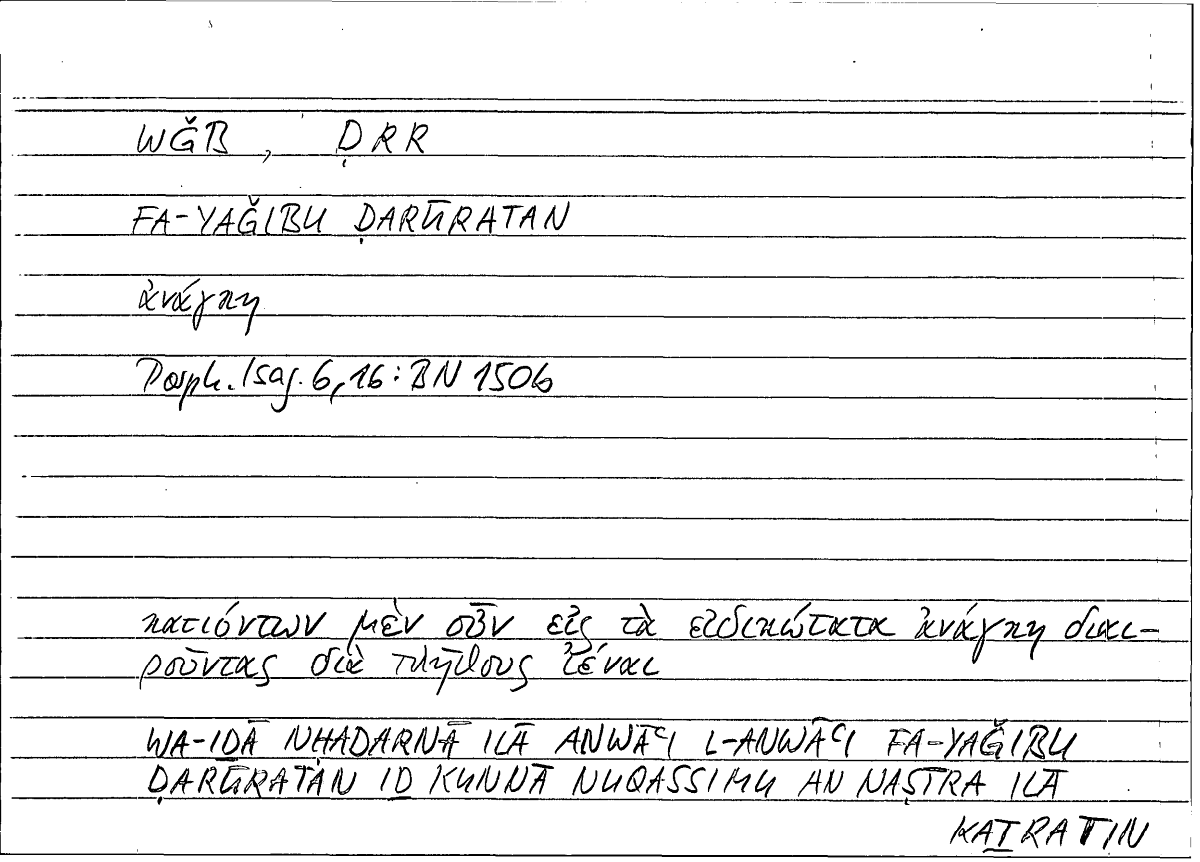 WĞB, ḌRR
FA-YAĞIBU ḌARŪRATAN
ἀνάγκη
Porph. Isag. 6,16: BN 150b
κατιόντων μὲν οὖν εἰς τὰ εἰδικώτατα ἀνάγκη διαι-
ροῦντας διὰ πλήθους ἰέναι
WA-IDĀ NHADARNĀ ILĀ ANWĀʿI L-ANWĀʿI FA-YAĞIBU
ḌARŪRATAN IḎ KUNNĀ NUQASSIMU AN NAṢĪRA ILĀ
KAṮRATIN